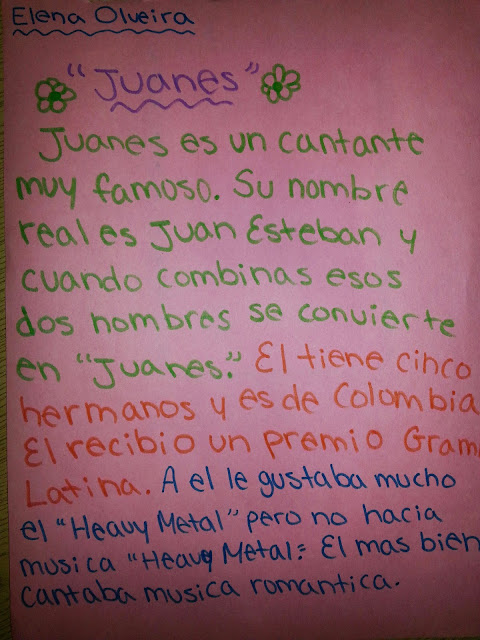 Elena Olveira
"Juanes"
Juanes es un cantante
muy famoso. Su nombre
real es Juan Esteban y
cuando combinas esos
dos nombres se convierte
en "Juanes." El tiene cinco
hermanos y es de Colombia
El recibio un premio Gram
Latina. A el le gustaba mucho
el "Heavy Metal" pero no hacia
musica "Heavy Metal." El mas bien
cantaba musica romantica.